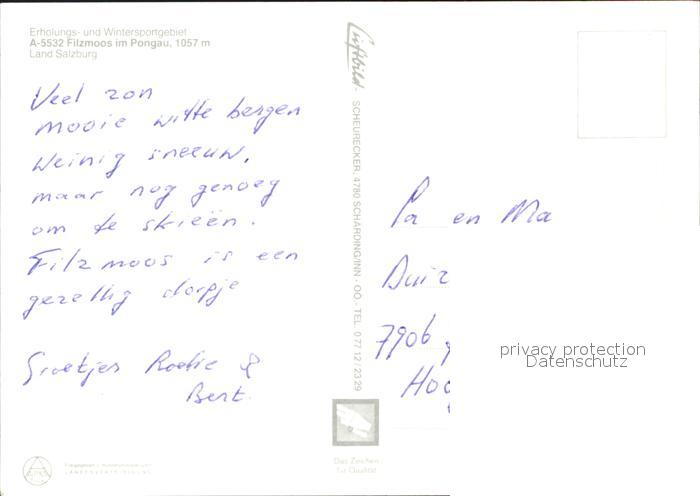 Erholungs- und Wintersportgebiet
A-5532 Filzmoos im Pongau, 1057 m
Land Salzburg
Veel zon
mooie witte bergen
weinig sneeuw,
maar nog genoeg
om te skieën.
Filzmoos is een
gezellig dorpje
Groetjes Roelie &
Bert.
Luftbild - SCHEURECKER, 4780 SCHÄRDING/INN - OÖ. - TEL. 0 77 12 / 23 29
Pa en Ma
Duiz
7906
Hoo
privacy protection
Datenschutz
Das Zeichen
für Qualität